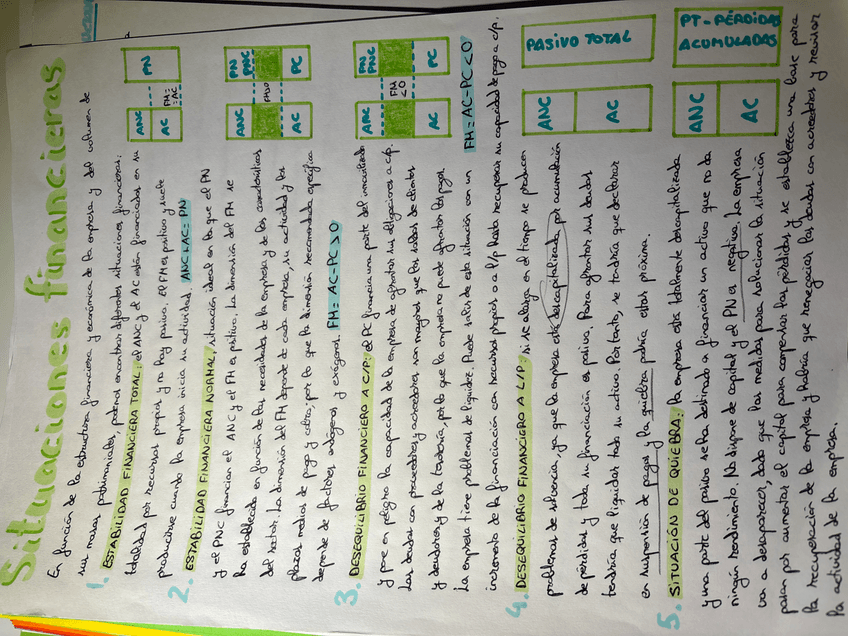 Situaciones financieras
En función de la estructura financiera y económica de la empresa y del volumen de
sus masas patrimoniales, podemos encontrar diferentes situaciones financieras:
1. ESTABILIDAD FINANCIERA TOTAL: el ANC y el AC están financiados en su
totalidad por recursos propios y no hay pasivo. El FM es positivo y suele
producirse cuando la empresa inicia su actividad. ANC+AC=PN
ANC
AC
PN
FM=
=AC
2. ESTABILIDAD FINANCIERA NORMAL: situación ideal en la que el PN
y el PNC financian el ANC y el FM es positivo. La dimensión del FM se
ha establecido en función de las necesidades de la empresa y de las características
del sector. La dimensión del FM depende de cada empresa, su actividad y los
plazos medios de pago y cobro, por lo que la dimensión recomendada específica
depende de factores endógenos y exógenos. FM=AC-PC>0
ANC
AC
PN
PNC
PC
FM>0
3. DESEQUILIBRIO FINANCIERO A C/P: el PC financia una parte del inmovilizado
y pone en peligro la capacidad de la empresa de afrontar sus obligaciones a c/p.
Las deudas con proveedores y acreedores son mayores que los saldos de clientes
y deudores y de la tesorería, por lo que la empresa no puede afrontar los pagos.
La empresa tiene problemas de liquidez. Puede salir de esta situación con un FM=AC-PC<0
incremento de la financiación con recursos propios o a l/p hasta recuperar su capacidad de pago a c/p.
ANC
AC
PN
PNC
PC
FM
<0
4. DESEQUILIBRIO FINANCIERO A L/P: si se alarga en el tiempo se producen
problemas de solvencia, ya que la empresa está descapitalizada por acumulación
de pérdidas y toda su financiación es pasivo. Para afrontar sus deudas
tendría que liquidar todo su activo. Por tanto, se tendría que declarar
en suspensión de pagos y la quiebra podría estar próxima.
ANC
AC
PASIVO TOTAL
5. SITUACIÓN DE QUIEBRA: la empresa está totalmente descapitalizada
y una parte del pasivo se ha destinado a financiar un activo que no da
ningún rendimiento. No dispone de capital y el PN es negativo. La empresa
va a desaparecer, dado que las medidas para solucionar la situación
pasan por aumentar el capital para compensar las pérdidas, y se establezca una base para
la recuperación de la empresa y habría que renegociar las deudas con acreedores y revisar
la actividad de la empresa.
ANC
AC
PT-PÉRDIDAS
ACUMULADAS